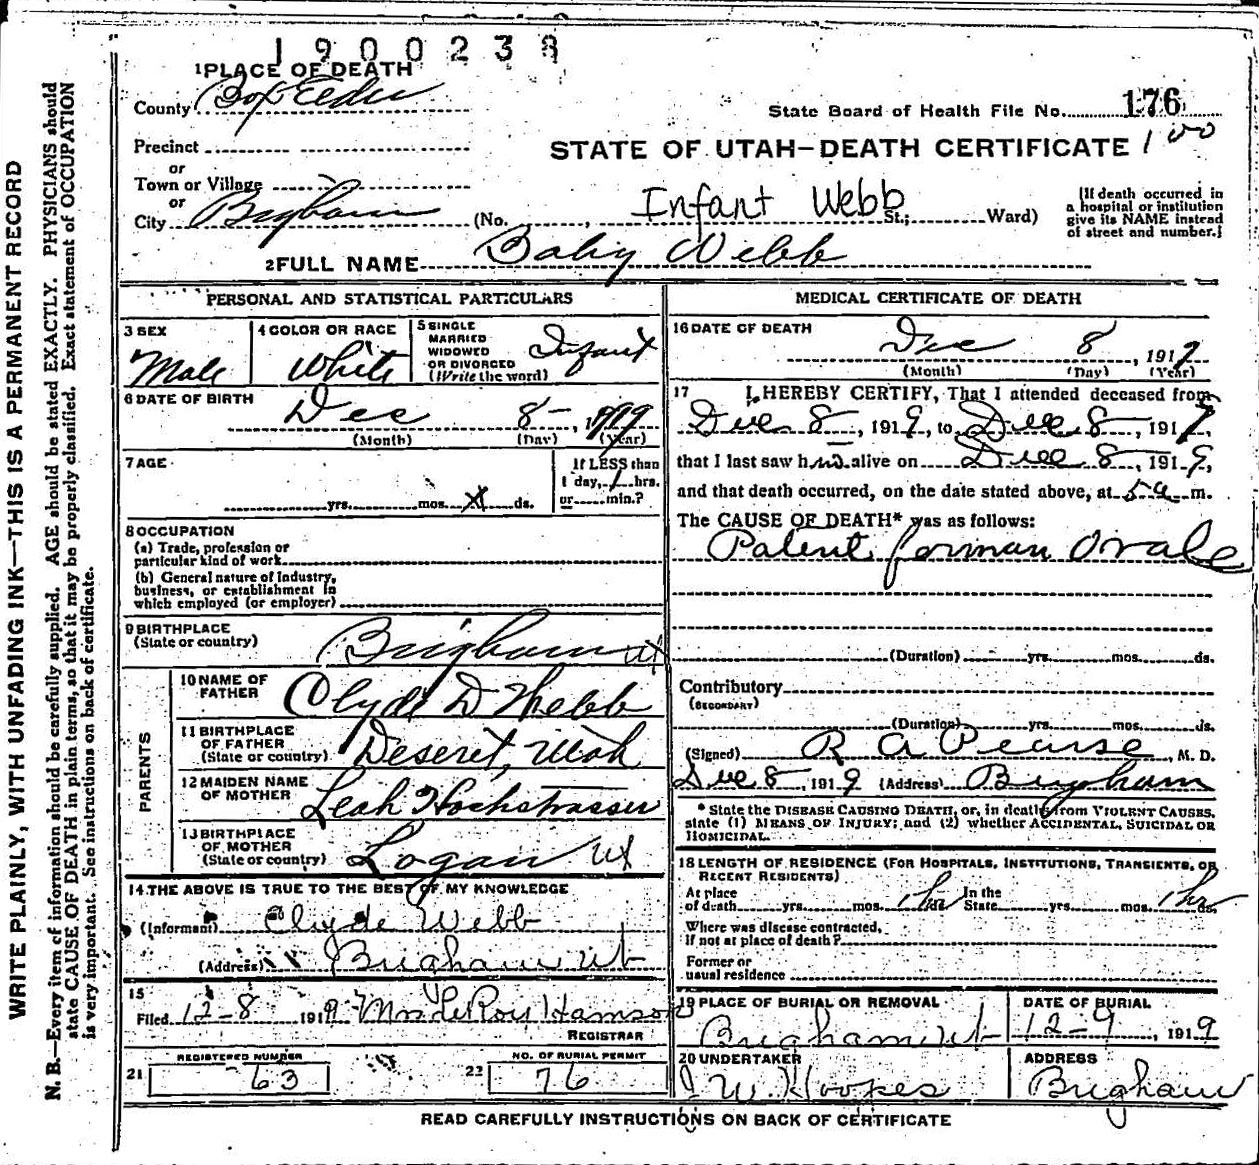 1900238
1 PLACE OF DEATH
County Box Elder
State Board of Health File No. 176
Precinct
STATE OF UTAH—DEATH CERTIFICATE 100
or
Town or Village
or
City Brigham (No. Infant Webb St.; Ward)
[If death occurred in a hospital or institution give its NAME instead of street and number.]
2 FULL NAME Baby Webb
PERSONAL AND STATISTICAL PARTICULARS
3 SEX Male
4 COLOR OR RACE White
5 SINGLE MARRIED WIDOWED OR DIVORCED (Write the word) Infant
6 DATE OF BIRTH Dec 8- 1919
(Month) (Day) (Year)
7 AGE
yrs. mos. ds.
If LESS than 1 day, 1 hrs. or min.?
8 OCCUPATION
(a) Trade, profession or particular kind of work
(b) General nature of industry, business, or establishment in which employed (or employer)
9 BIRTHPLACE (State or country) Brigham Ut
PARENTS
10 NAME OF FATHER Clyde D Webb
11 BIRTHPLACE OF FATHER (State or country) Deseret, Utah
12 MAIDEN NAME OF MOTHER Leah Hochstrasser
13 BIRTHPLACE OF MOTHER (State or country) Logan Ut
14 THE ABOVE IS TRUE TO THE BEST OF MY KNOWLEDGE
(Informant) Clyde Webb
(Address) Brigham Ut
15
Filed 12-8 1919 Mrs LeRoy Hamson
REGISTRAR
21 REGISTERED NUMBER 63
22 NO. OF BURIAL PERMIT 76
MEDICAL CERTIFICATE OF DEATH
16 DATE OF DEATH
Dec 8, 1919
(Month) (Day) (Year)
17 I HEREBY CERTIFY, That I attended deceased from
Dec 8, 1919, to Dec 8, 1919,
that I last saw him alive on Dec 8, 1919,
and that death occurred, on the date stated above, at 5 a m.
The CAUSE OF DEATH* was as follows:
Patent forman Ovale
(Duration) yrs. mos. ds.
Contributory
(SECONDARY)
(Duration) yrs. mos. ds.
(Signed) R A Pearse, M. D.
Dec 8 1919 (Address) Brigham
* State the DISEASE CAUSING DEATH, or, in deaths from VIOLENT CAUSES,
state (1) MEANS OF INJURY; and (2) whether ACCIDENTAL, SUICIDAL OR
HOMICIDAL.
18 LENGTH OF RESIDENCE (FOR HOSPITALS, INSTITUTIONS, TRANSIENTS, OR RECENT RESIDENTS)
At place of death yrs. mos. 1 hr ds. In the State yrs. mos. 1 hr ds.
Where was disease contracted, If not at place of death?
Former or usual residence
19 PLACE OF BURIAL OR REMOVAL Brigham Ut
DATE OF BURIAL 12-9, 1919
20 UNDERTAKER J W Hoopes
ADDRESS Brigham
READ CAREFULLY INSTRUCTIONS ON BACK OF CERTIFICATE
WRITE PLAINLY, WITH UNFADING INK—THIS IS A PERMANENT RECORD
N. B.—Every item of information should be carefully supplied. AGE should be stated EXACTLY. PHYSICIANS should
state CAUSE OF DEATH in plain terms, so that it may be properly classified. Exact statement of OCCUPATION
is very important. See instructions on back of certificate.